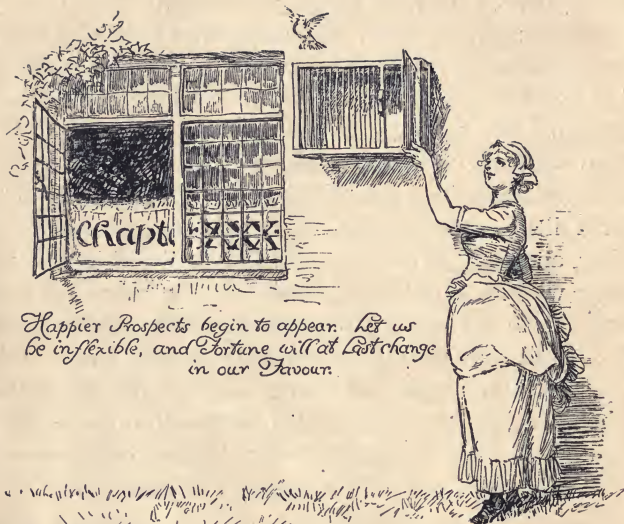 Chapter XXX
Happier Prospects begin to appear. Let us
be inflexible, and Fortune will at Last change
in our Favour.